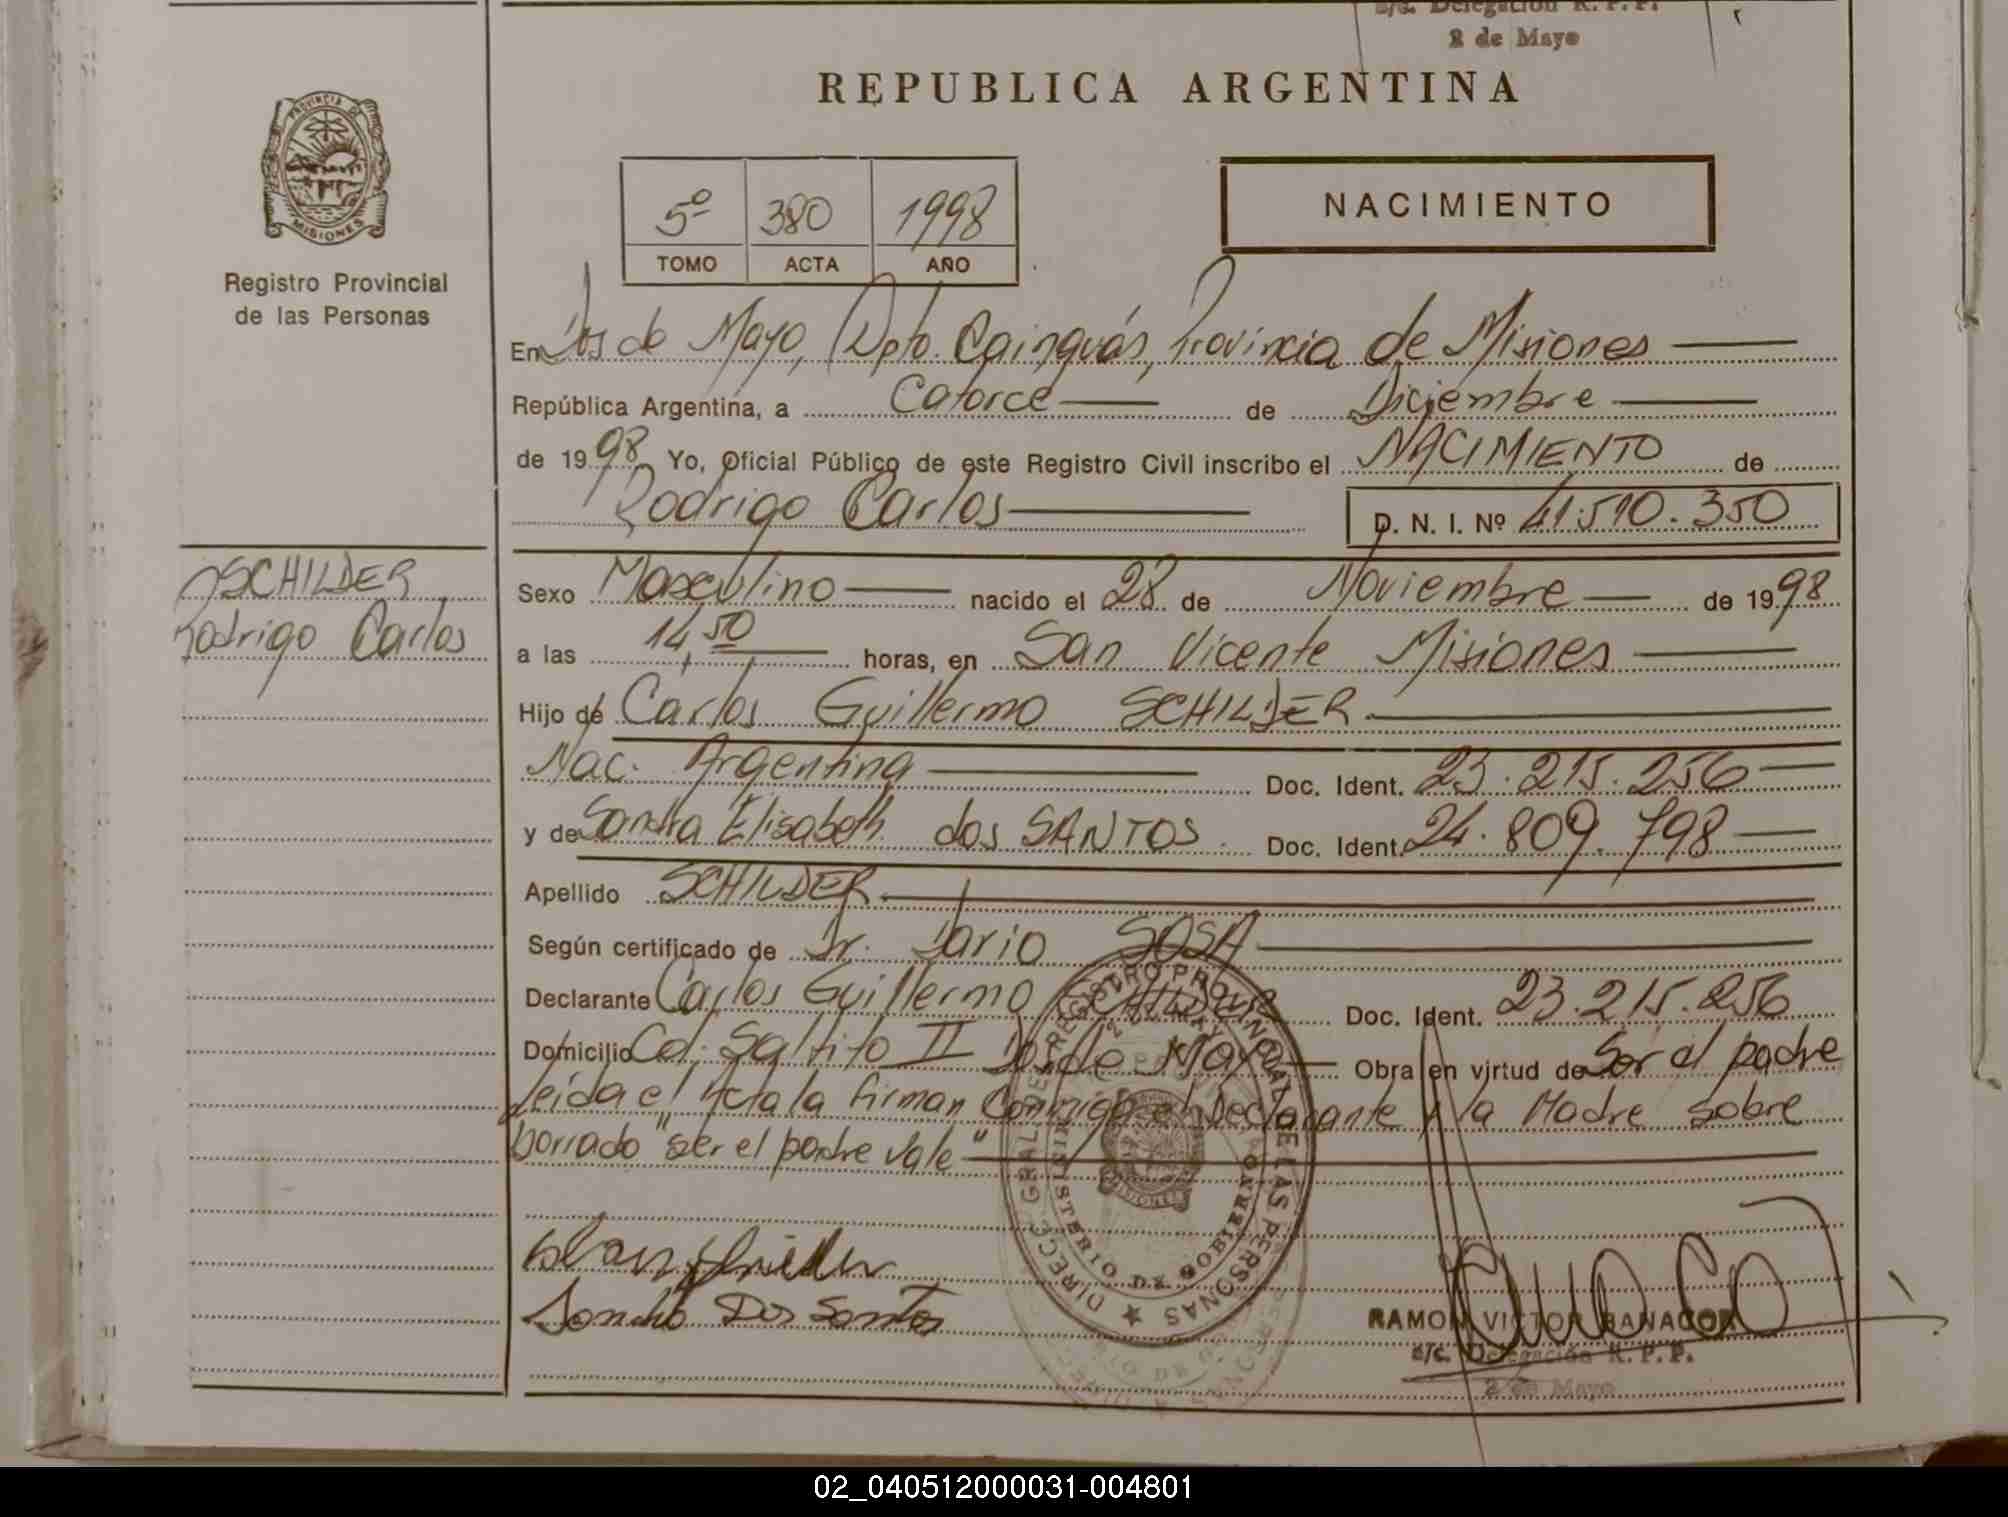 s/c. Delegación R. P. P.
2 de Mayo
REPUBLICA ARGENTINA
PROVINCIA DE
MISIONES
Registro Provincial
de las Personas
5º 380 1998
TOMO ACTA AÑO
NACIMIENTO
En Dos de Mayo, Dpto. Cainguás, Provincia de Misiones
República Argentina, a Catorce de Diciembre
de 1998 Yo, Oficial Público de este Registro Civil inscribo el NACIMIENTO de
Rodrigo Carlos D. N. I. Nº 41.510.350
SCHILDER
Rodrigo Carlos
Sexo Masculino nacido el 28 de Noviembre de 1998
a las 14,50 horas, en San Vicente Misiones
Hijo de Carlos Guillermo SCHILDER
Nac. Argentina Doc. Ident. 23.215.256
y de Sandra Elisabeth dos SANTOS Doc. Ident. 24.809.798
Apellido SCHILDER
Según certificado de Dr. Dario SOSA
Declarante Carlos Guillermo SCHILDER Doc. Ident. 23.215.256
Domicilio Col. Saltito II Dos de Mayo Obra en virtud de Ser el padre
leida el Acta la firman Conmigo el Declarante y la Madre sobre
borrado "ser el padre vale"
DIRECC. GRAL. DEL REGISTRO PROVINCIAL DE LAS PERSONAS
MINISTERIO DE GOBIERNO
MISIONES
Sandra Dos Santos
RAMON VICTOR
s/c. Delegación R. P. P.
2 de Mayo
02_040512000031-004801